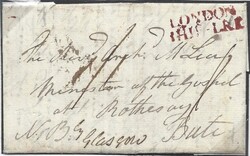 LONDON
The Revd Archd McLea
Minister of the Gospel
at Rothesay
N.B. by Glasgow Bute